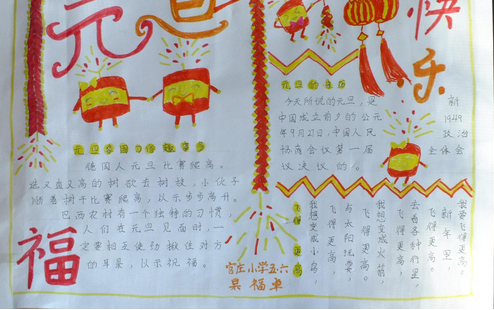 元旦
快乐
元旦各国习俗趣事多
德国人元旦比赛爬高。
选又直又高的树砍去树枝，小伙子
顺着树干比赛爬高，以示步步高升。
巴西农村有一个独特的习惯，
人们在元旦见面时，一
定要相互使劲揪住对方
的耳朵，以示祝福。
福
元旦的来历
今天所说的元旦，是新
中国成立前夕的公元1949
年9月27日，中国人民政治
协商会议第一届全体会
议决议的。
飞得更高
我想变成小鸟，
飞得更高。
与太阳玩耍，
飞得更高。
我想变成火箭，
飞得更高。
去看
飞得更高。
新年里，
我要飞得更高。
官庄小学五·六
福卓